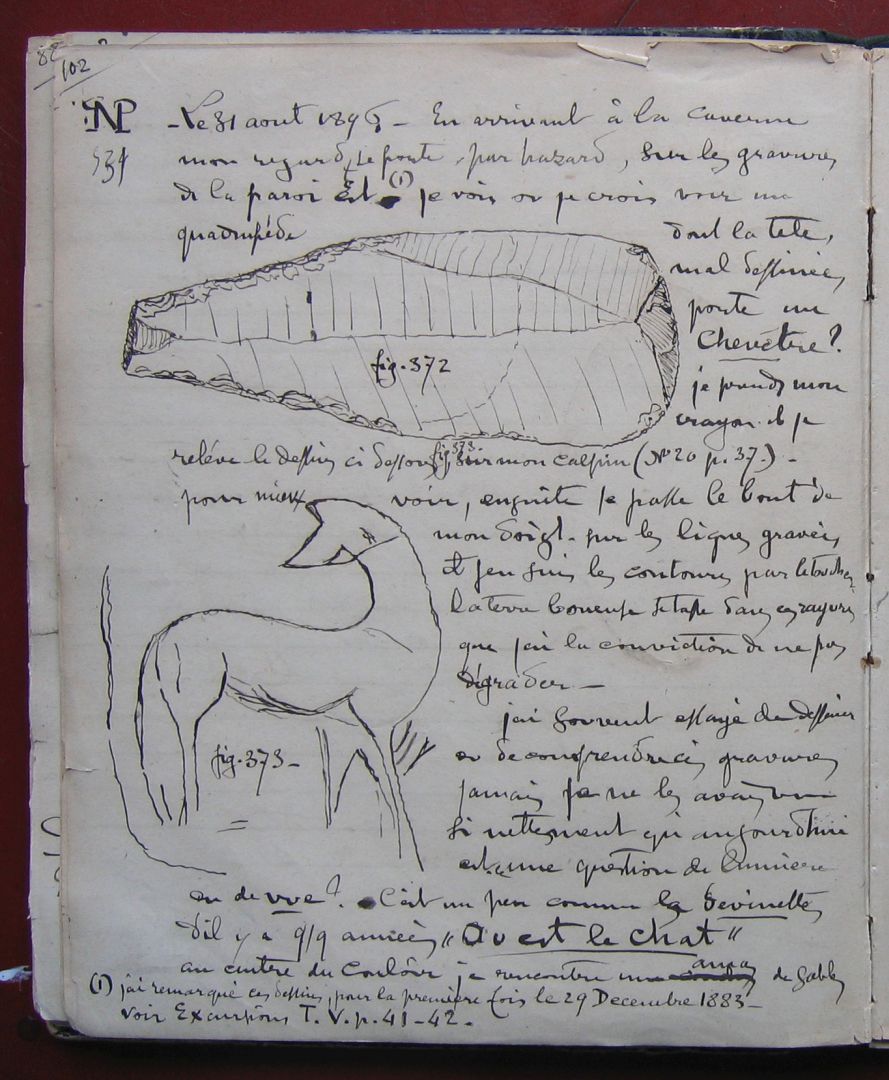 102
NP
539
Le 31 aout 1896 – En arrivant à la caverne
mon regard, se porte, par hazard, sur les gravures
de la paroi Est. (1) je vois ou je crois voir un
quadrupède
dont la tete,
mal dessinée,
porte un
Chevetre?
je prends mon
crayon et je
fig. 372
relève le dessin ci dessous, fig. 373 sur mon calepin (N° 20 p. 37.) –
pour mieux voir, ensuite je passe le bout de
mon doigt sur les lignes gravées
et j'en suis les contours par le toucher
la terre boueuse dans ces rayures
que j'ai la conviction de ne pas
dégrader –
j'ai souvent essayé de dessiner
ou de comprendre ces gravures
jamais je ne les avais vu
si nettement qu'aujourd'hui
est-ce une question de lumiere
fig. 373 –
ou de vue? C'est un peu comme les devinettes
d'il y a 9/9 années "Ou est le chat"
au centre du Couloir je rencontre un amas de sables
(1) j'ai remarqué ces dessins, pour la première fois le 29 Decembre 1883 –
voir Excursions T. V. p. 41 – 42 –